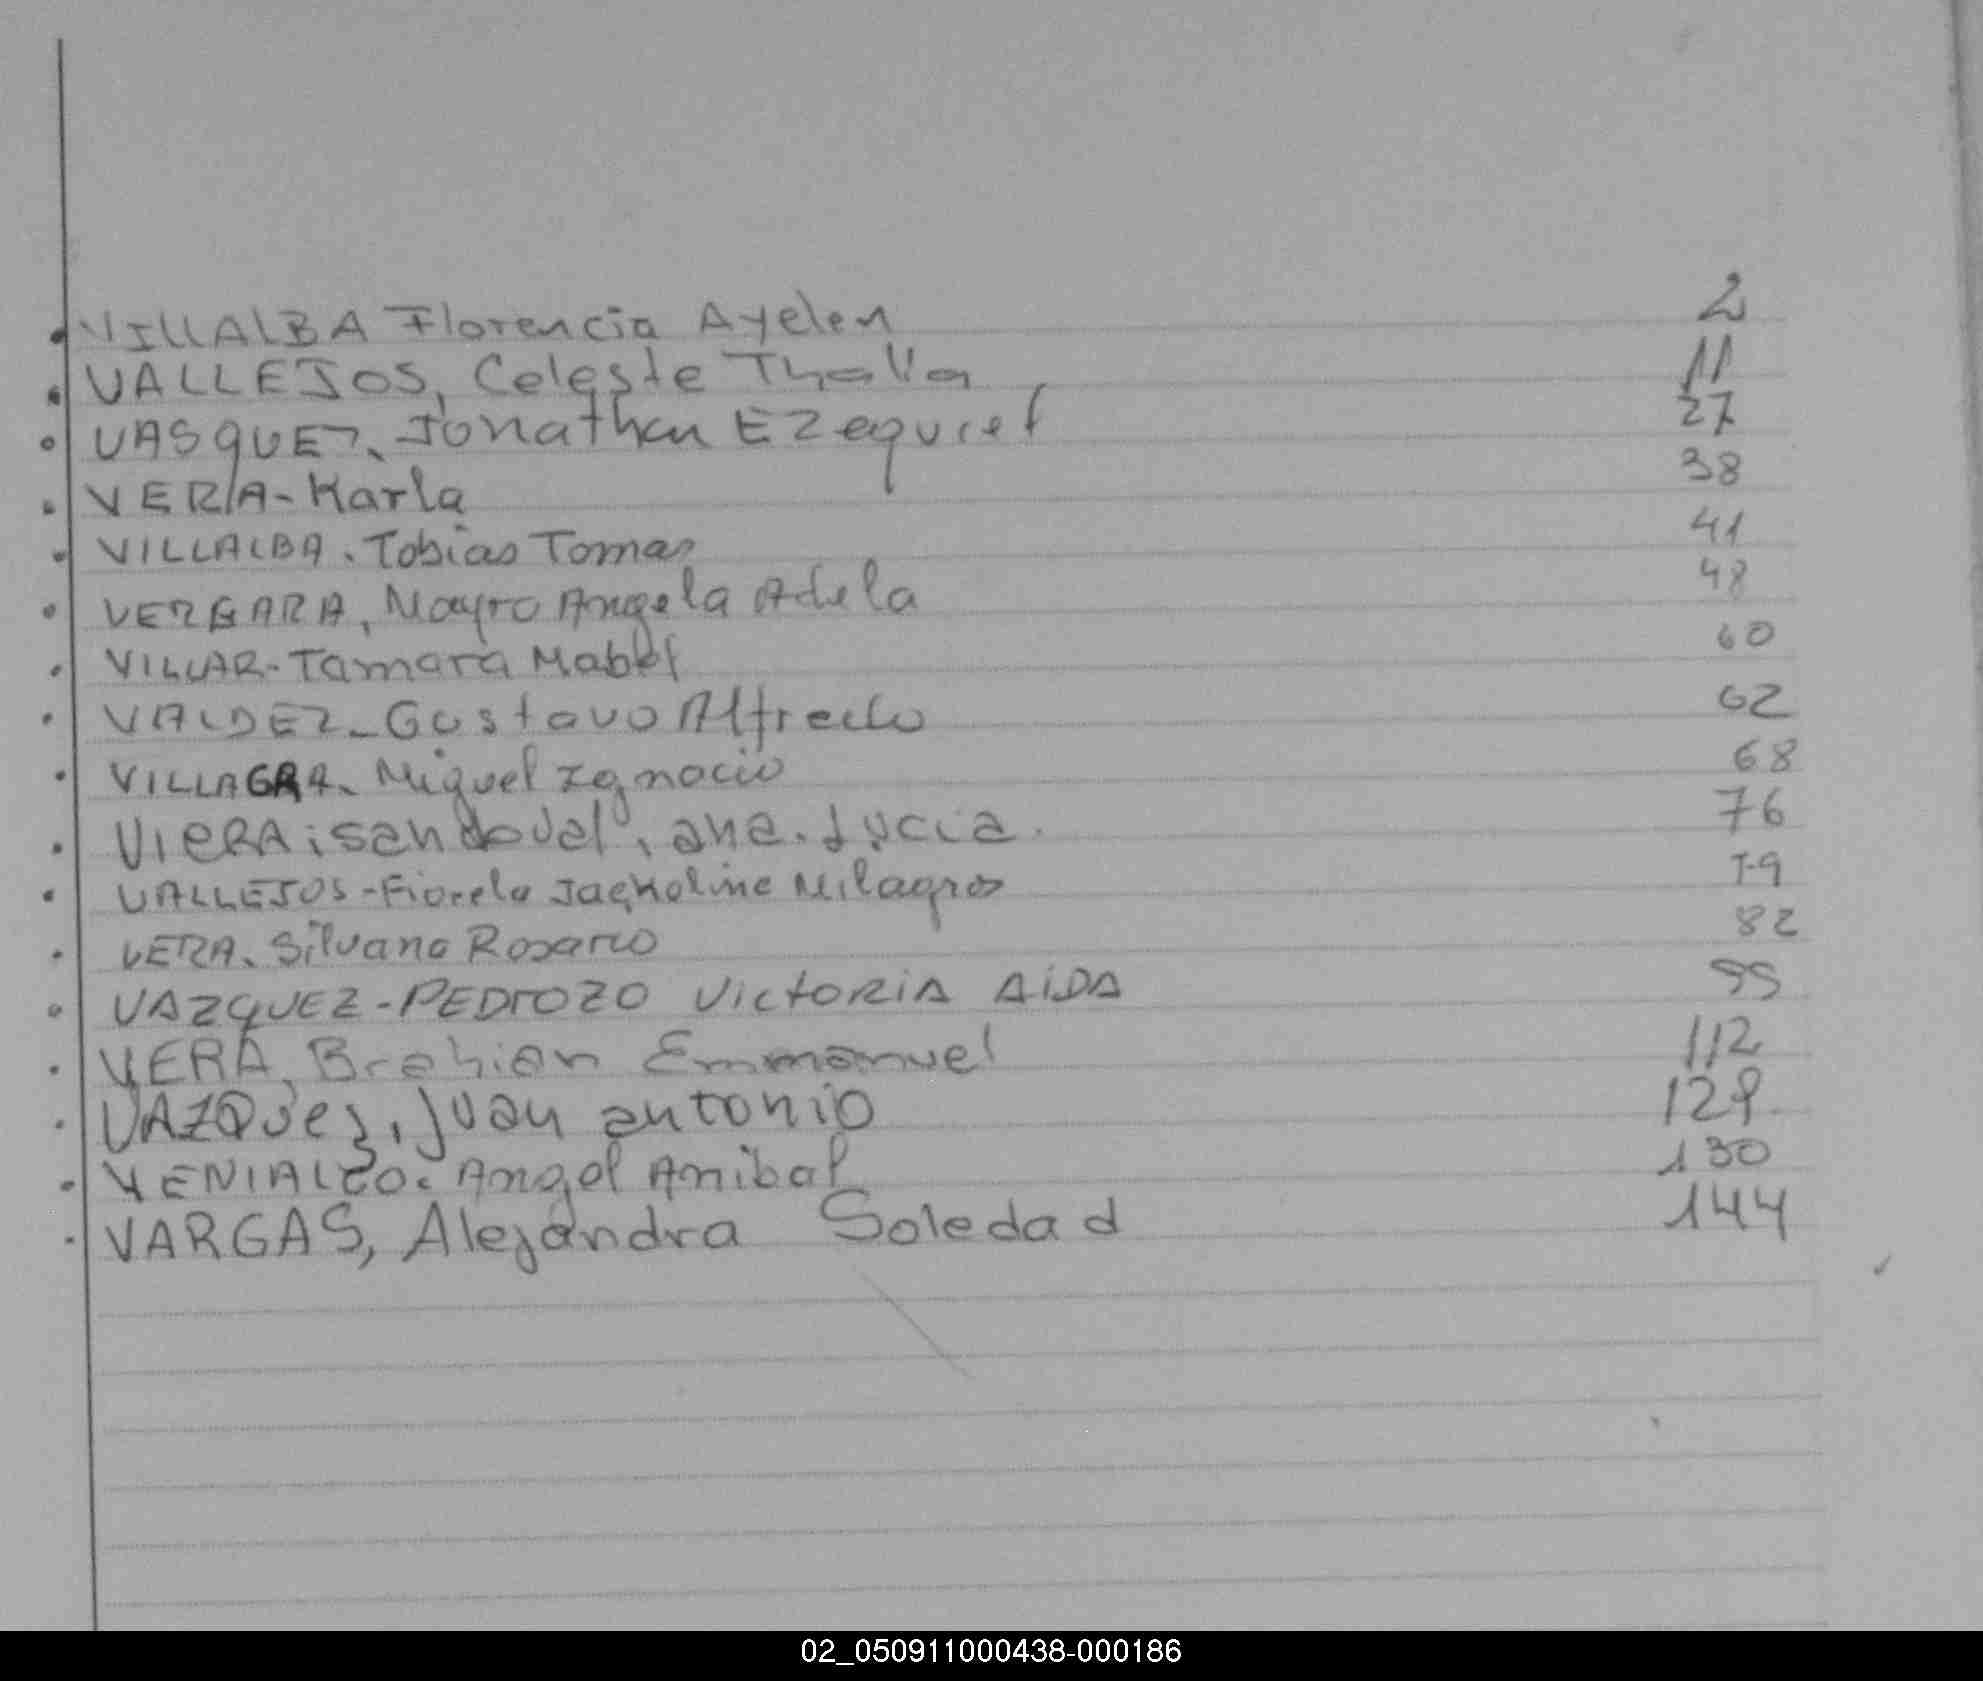 VILLALBA Florencia Ayelen 2
VALLEJOS, Celeste Thalia 11
VASQUEZ, Jonathan Ezequiel 27
VERA-Karla 38
VILLALBA. Tobias Tomas 41
VERGARA, Mayra Angela Adela 48
VILLAR-Tamara Mabel 60
VALDEZ-Gustavo Alfredo 62
VILLAGRA. Miguel Ignacio 68
VIERA; sandoval, ana. Lucia. 76
VALLEJOS-Fiorela Jackoline Milagros 79
VERA. Silvana Rosario 82
VAZQUEZ-PEDROZO VICTORIA AIDA 95
VERA, Brahian Emmanuel 112
VAZQUEZ, juan antonio 129
VENIALGO. Angel Anibal 130
VARGAS, Alejandra Soledad 144
02_050911000438-000186